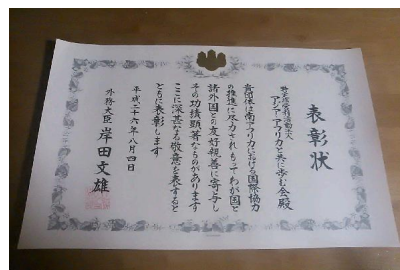 表彰状
特定非営利活動法人
アジア・アフリカと共に歩む会殿
貴団体は南アフリカにおける国際協力
の推進に尽力されもってわが国と
諸外国との友好親善に寄与し
その功績顕著なものがあります
ここに深甚なる敬意を表すると
ともに表彰します
平成二十六年八月四日
外務大臣 岸田文雄